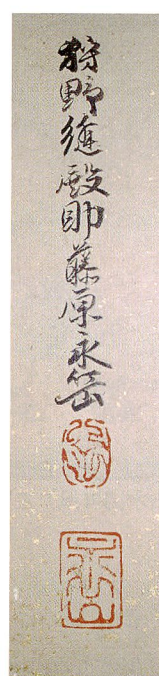 狩野縫殿助藤原永岳